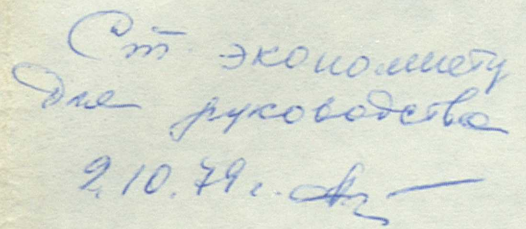 Ст. экономисту
для руководства
9.10.79 г.